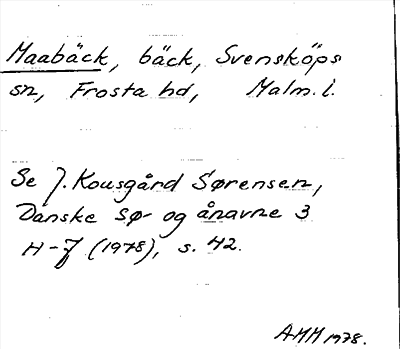 Maabäck, bäck, Svensköps
sn, Frosta hd, Malm. l.
Se J. Kousgård Sørensen,
Danske sø- og ånavne 3
H-J (1978), s. 42.
AMM 1978.